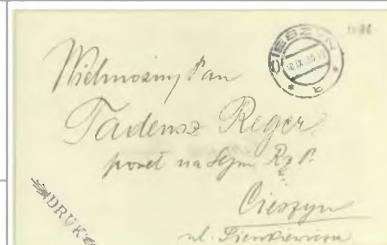 CIESZYN
Wielmożny Pan
Tadeusz Reger
poseł na Sejm Rz. P.
Cieszyn
ul. Sienkiewicza
DRUK